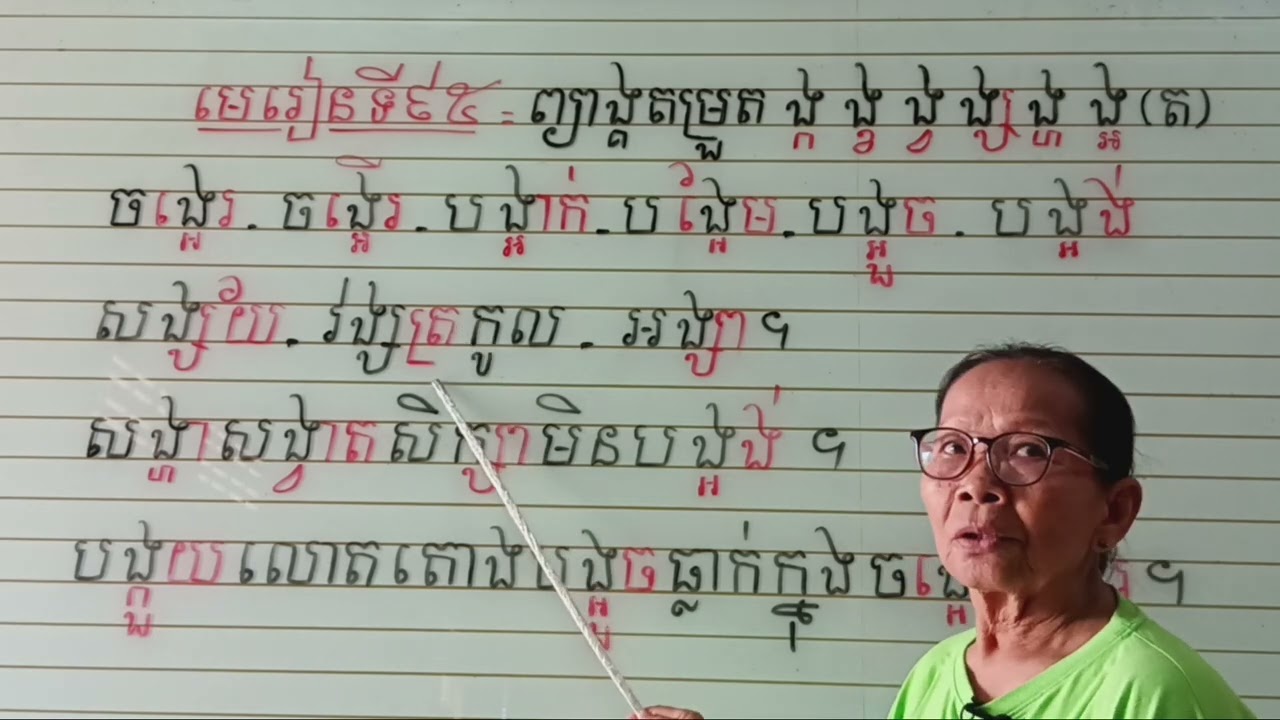 មេរៀនទី៩៥ = ព្យាង្គតម្រួត ង្ក ង្ខ ង្វ ង្ស ង្ហ ង្អ (ត)
ចង្អេរ . ចង្អើរ . បង្អាក់ . បង្អែម . បង្អួច . បង្អង់
សង្ស័យ . វង្សត្រកូល . អង្សា ។
សង្ហាសង្វាតសិក្សាមិនបង្អង់ ។
បង្កួយលោតតោងបង្អួចធ្លាក់ក្នុងច ។